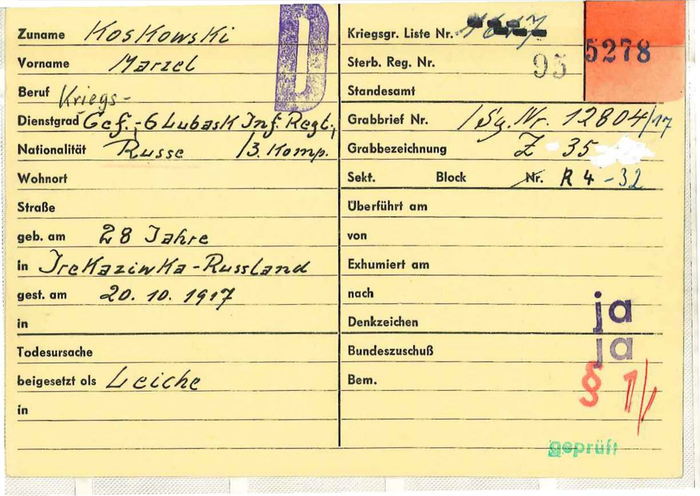 Zuname Koskowski
Vorname Marzel
Beruf Kriegs-
Dienstgrad Gef., 6 Lubask Inf. Regt.,
Nationalität Russe /3. Komp.
Wohnort
Straße
geb. am 28 Jahre
in Trekaziwka-Russland
gest. am 20. 10. 1917
in
Todesursache
beigesetzt als Leiche
in
D
Kriegsgr. Liste Nr.
Sterb. Reg. Nr. 95
5278
Standesamt
Grabbrief Nr. /Sg. Nr. 12804/17
Grabbezeichnung Z - 35
Sekt. Block Nr. R 4 - 32
Überführt am
von
Exhumiert am
nach
Denkzeichen ja
Bundeszuschuß ja
Bem. § 1/
geprüft